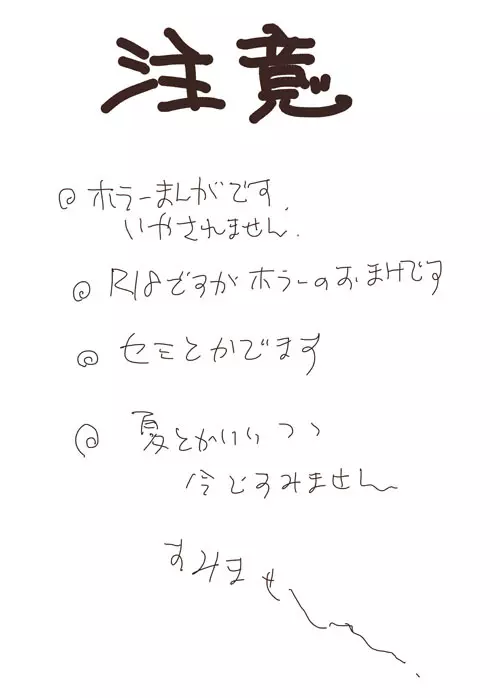 注意
◎ ホラーまんがです.
いやされません.
◎ R18ですがホラーのおまけです
◎ セミとかでます
◎ 夏とかいいつつ
今どすみません
すみません